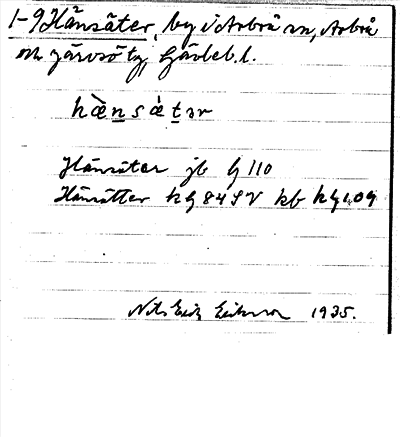 1-9 Hänsäter, by i Arbrå sn, Arbrå
och Järvsö tg, Gävleb. l.
hæ̀nsætər
Hänsäter jb G 110
Hänsätter kG 84 SV kb kG 109
Nils Erik Eriksson 1935.